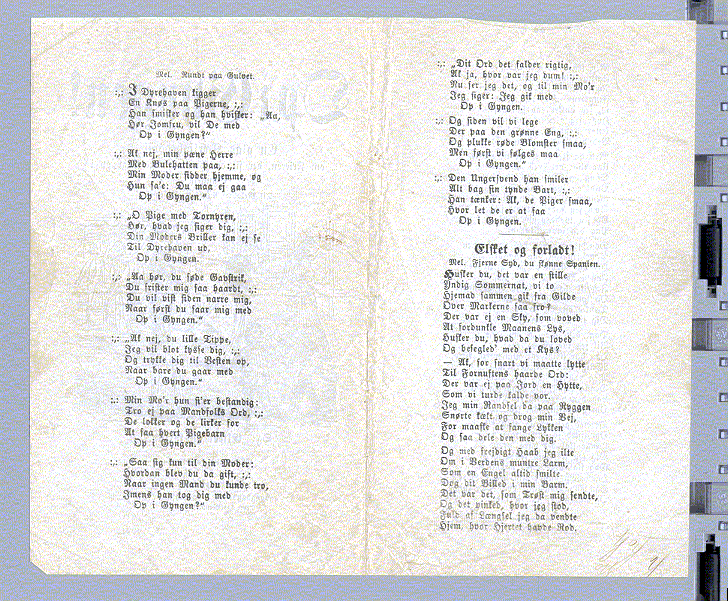 Mel. Rundt paa Gulvet.
:,: I Dyrehaven kigger
En Knøs paa Pigerne, :,:
Han smisker og han hvisker: „Aa,
Hør Jomfru, vil De med
Op i Gyngen?“
:,: Ak nej, min pæne Herre
Med Bulehatten paa, :,:
Min Moder sidder hjemme, og
Hun sa'e: Du maa ej gaa
Op i Gyngen.“
:,: „O Pige med Tornyren,
Hør, hvad jeg siger dig, :,:
Din Moders Briller kan ej se
Til Dyrehaven ud,
Op i Gyngen.
:,: „Aa hør, du søde Gavstrik,
Du frister mig saa haardt, :,:
Du vil vist siden narre mig,
Naar først du faar mig med
Op i Gyngen.“
:,: „Ak nej, du lille Tippe,
Jeg vil blot kysse dig, :,:
Og trykke dig til Vesten op,
Naar bare du gaar med
Op i Gyngen.“
:,: Min Mo'r hun si'er bestandig:
Tro ej paa Mandfolks Ord, :,:
De lokker og de lirker for
At faa hvert Pigebarn
Op i Gyngen.“
:,: „Saa sig kun til din Moder:
Hvordan blev du da gift, :,:
Naar ingen Mand du kunde tro,
Imens han tog dig med
Op i Gyngen?“
:,: „Dit Ord det falder rigtig,
Ak ja, hvor var jeg dum! :,:
Nu ser jeg det, og til min Mo'r
Jeg siger: Jeg gik med
Op i Gyngen.
:,: Og siden vil vi lege
Der paa den grønne Eng, :,:
Og plukke røde Blomster smaa,
Men først vi følges maa
Op i Gyngen.“
:,: Den Ungersvend han smiler
Alt bag sin tynde Bart, :,:
Han tænker: Ak, de Piger smaa,
Hvor let de er at faa
Op i Gyngen.
Elsket og forladt!
Mel. Fjerne Syd, du skønne Spanien.
Husker du, det var en stille
Yndig Sommernat, vi to
Hjemad sammen gik fra Gilde
Over Markerne saa fro?
Der var ej en Sky, som voved
At fordunkle Maanens Lys,
Husker du, hvad du loved
Og besegled' med et Kys?
— Ak, for snart vi maatte lytte
Til Fornuftens haarde Ord:
Der var ej paa Jord en Hytte,
Som vi turde kalde vor.
Jeg min Randsel da paa Ryggen
Snørte kækt og drog min Vej,
For maaske at fange Lykken
Og saa dele den med dig.
Og med frejdigt Haab jeg ilte
Om i Verdens muntre Larm,
Som en Engel altid smilte
Dog dit Billed i min Barm.
Det var det, som Trøst mig sendte,
Og det vinked, hvor jeg stod,
Fuld af Længsel jeg da vendte
Hjem, hvor Hjertet havde Rod.